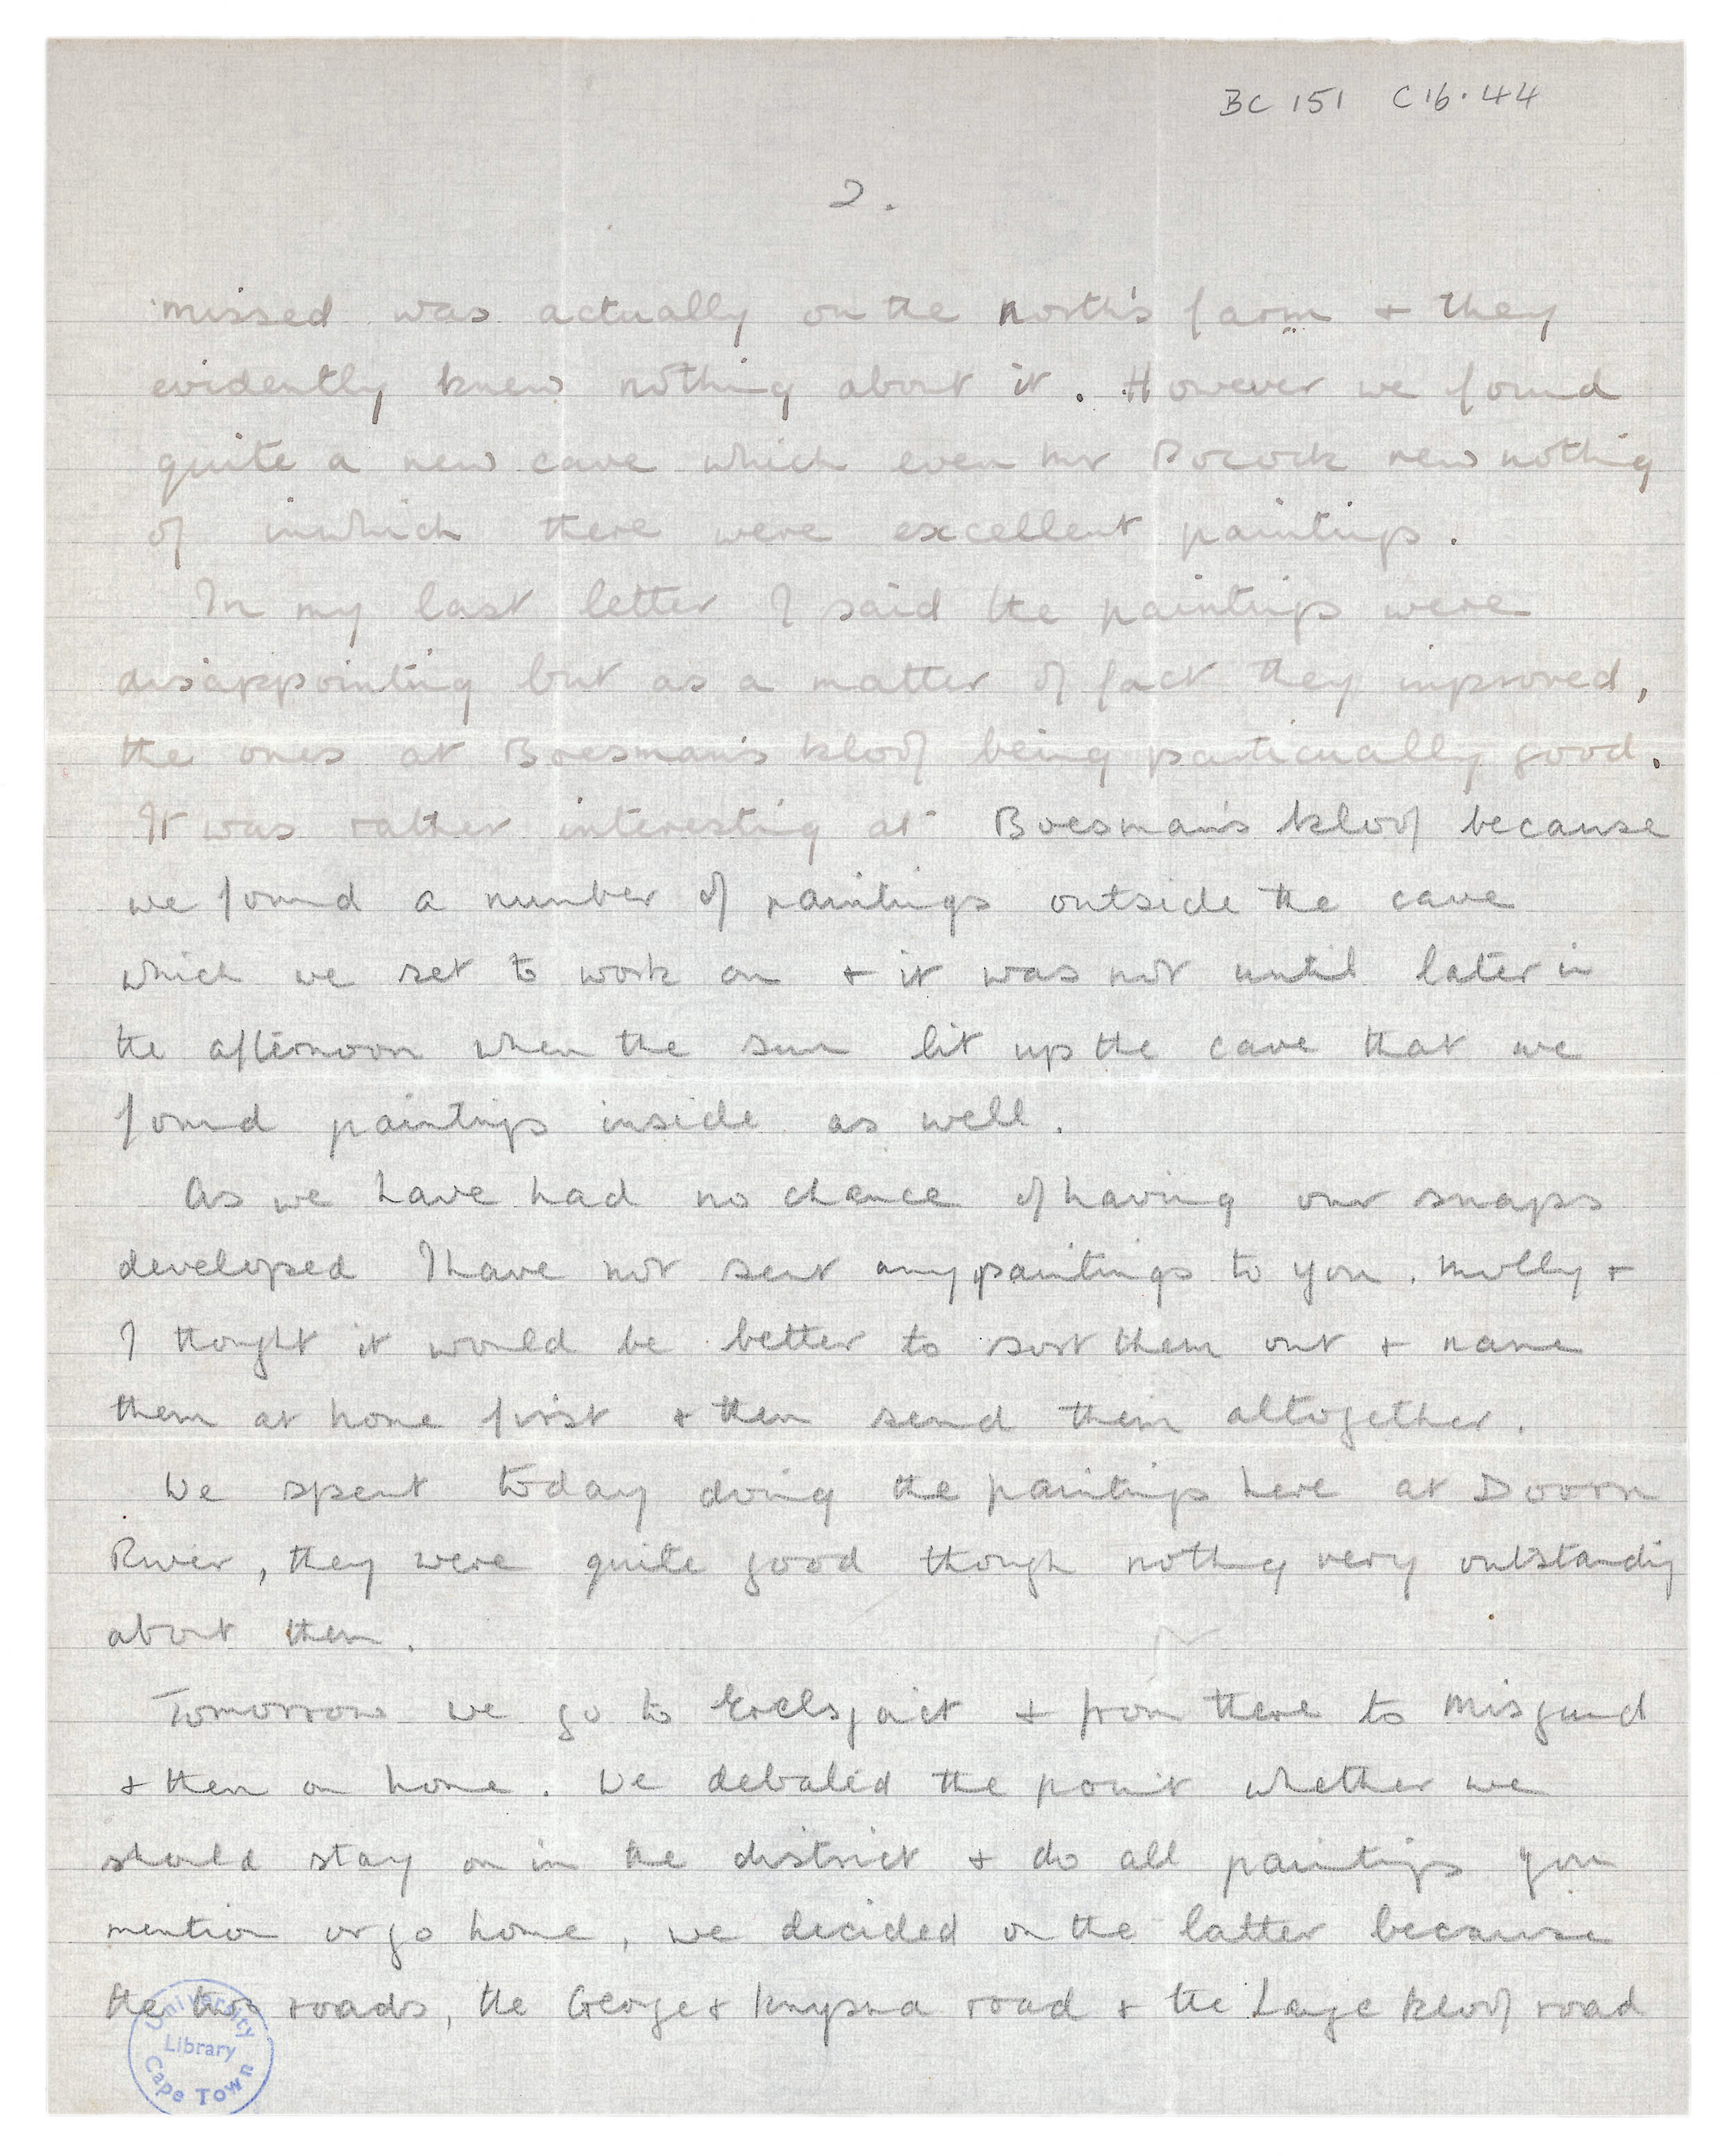 BC 151 C16.44
2.
missed was actually on the North's farm + they
evidently knew nothing about it. However we found
quite a new cave which even Mr Pocock new nothing
of inwhich there were excellent paintings.
In my last letter I said the paintings were
disappointing but as a matter of fact they improved,
the ones at Boesman's Kloof being particually good.
It was rather interesting at Boesman's Kloof because
we found a number of paintings outside the cave
which we set to work on + it was not until later in
the afternoon when the sun lit up the cave that we
found paintings inside as well.
As we have had no chance of having our snaps
developed I have not sent any paintings to you. Molly +
I thought it would be better to sort them out + name
them at home first + then send them altogether.
We spent today doing the paintings here at Doorn
River, they were quite good though nothing very outstanding
about them.
Tomorrow we go to + from there to Misgund
+ then on home. We debated the point whether we
should stay on in the district + do all paintings you
mention or go home, we decided on the latter because
the two roads, the George + Knysna road + the Lange Kloof road
University Library Cape Town